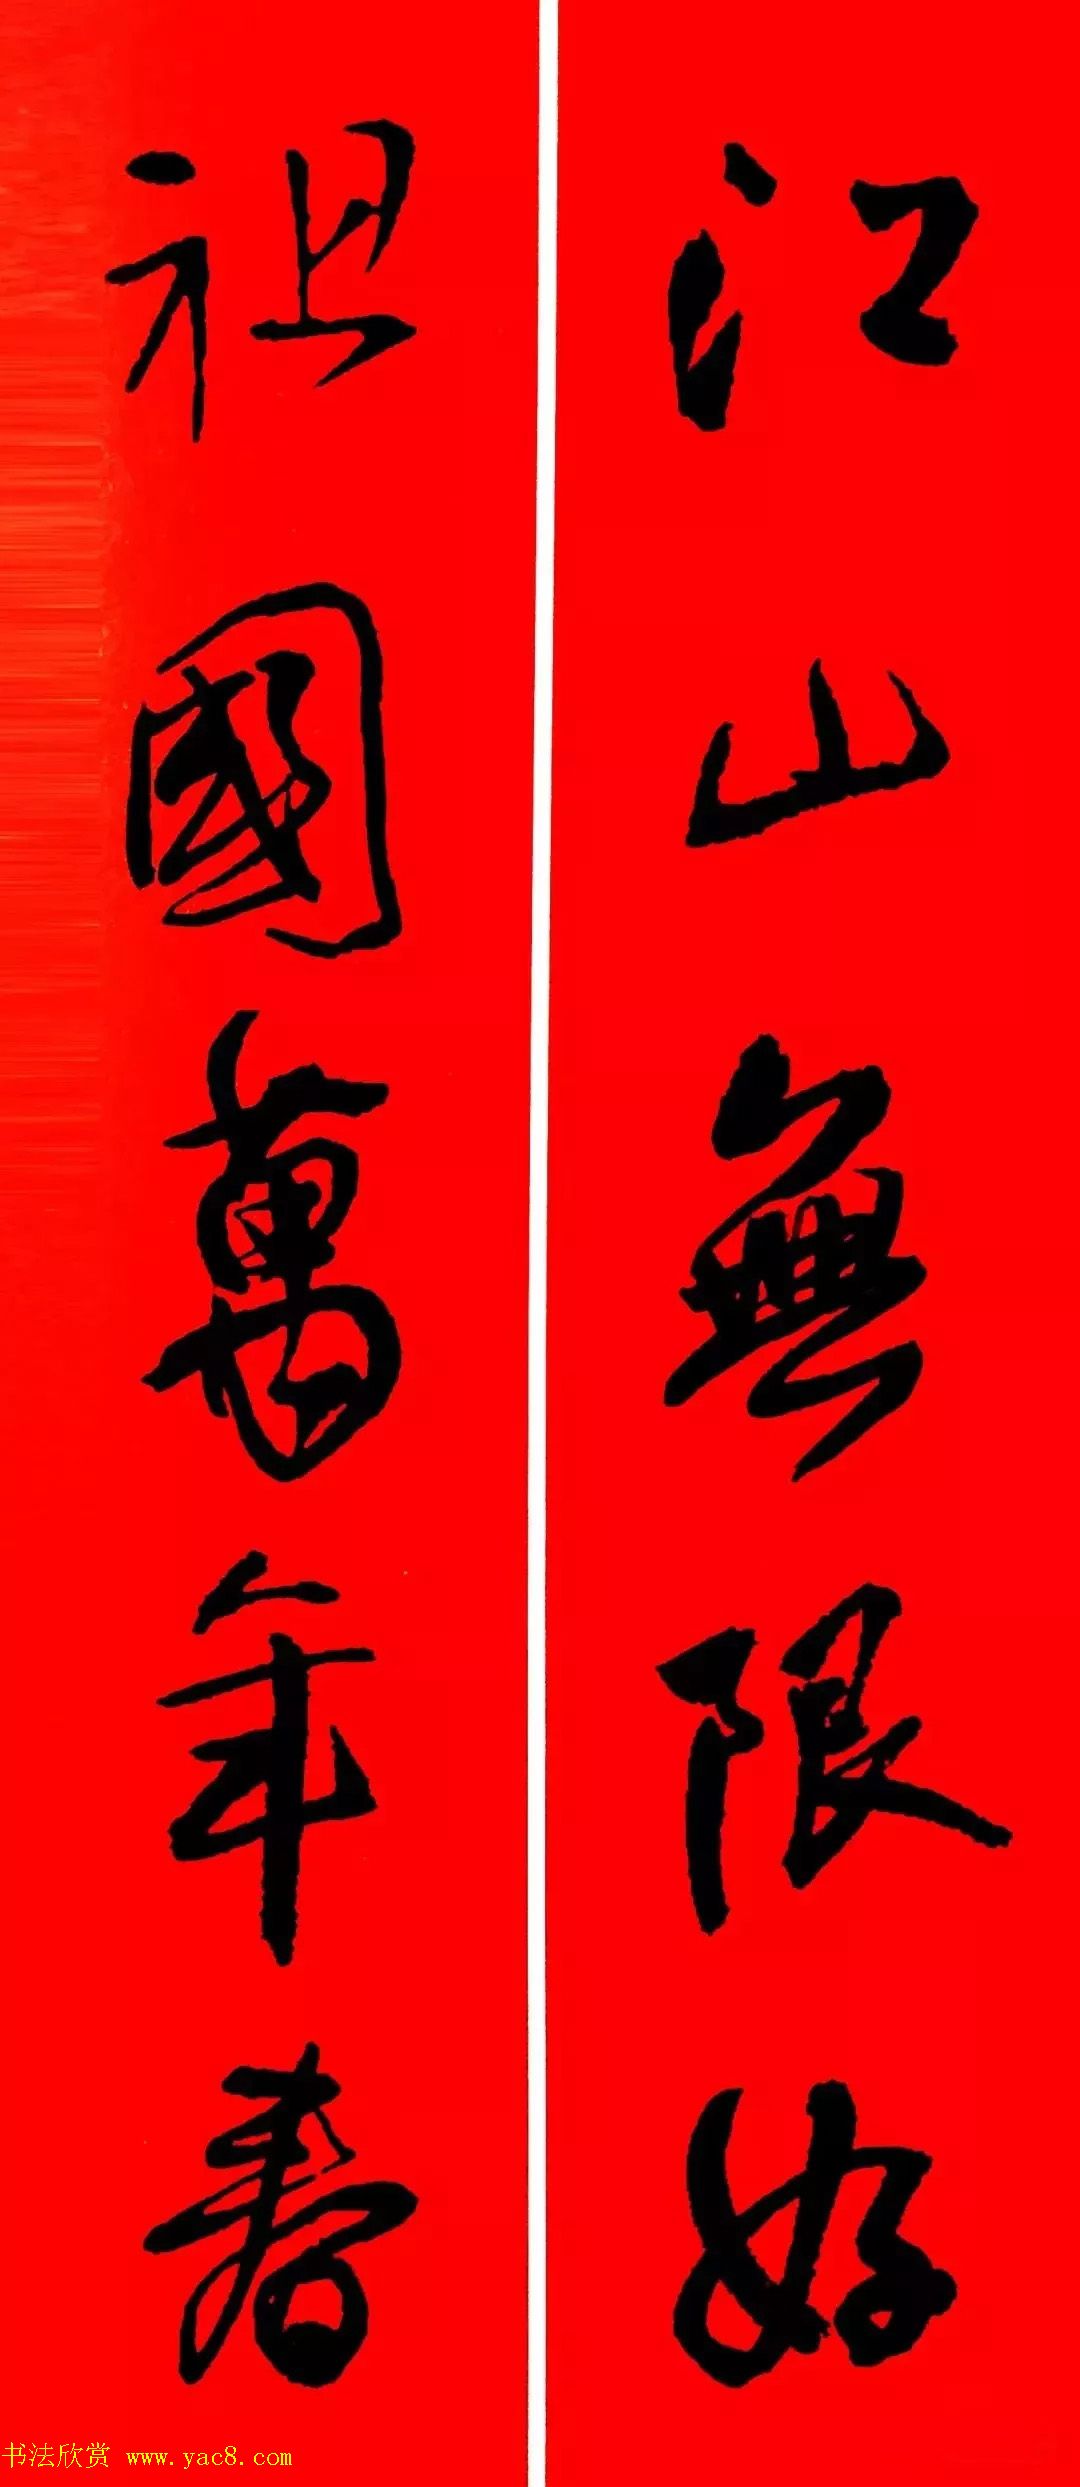 江山無限好
祖國萬年春
书法欣赏 www.yac8.com